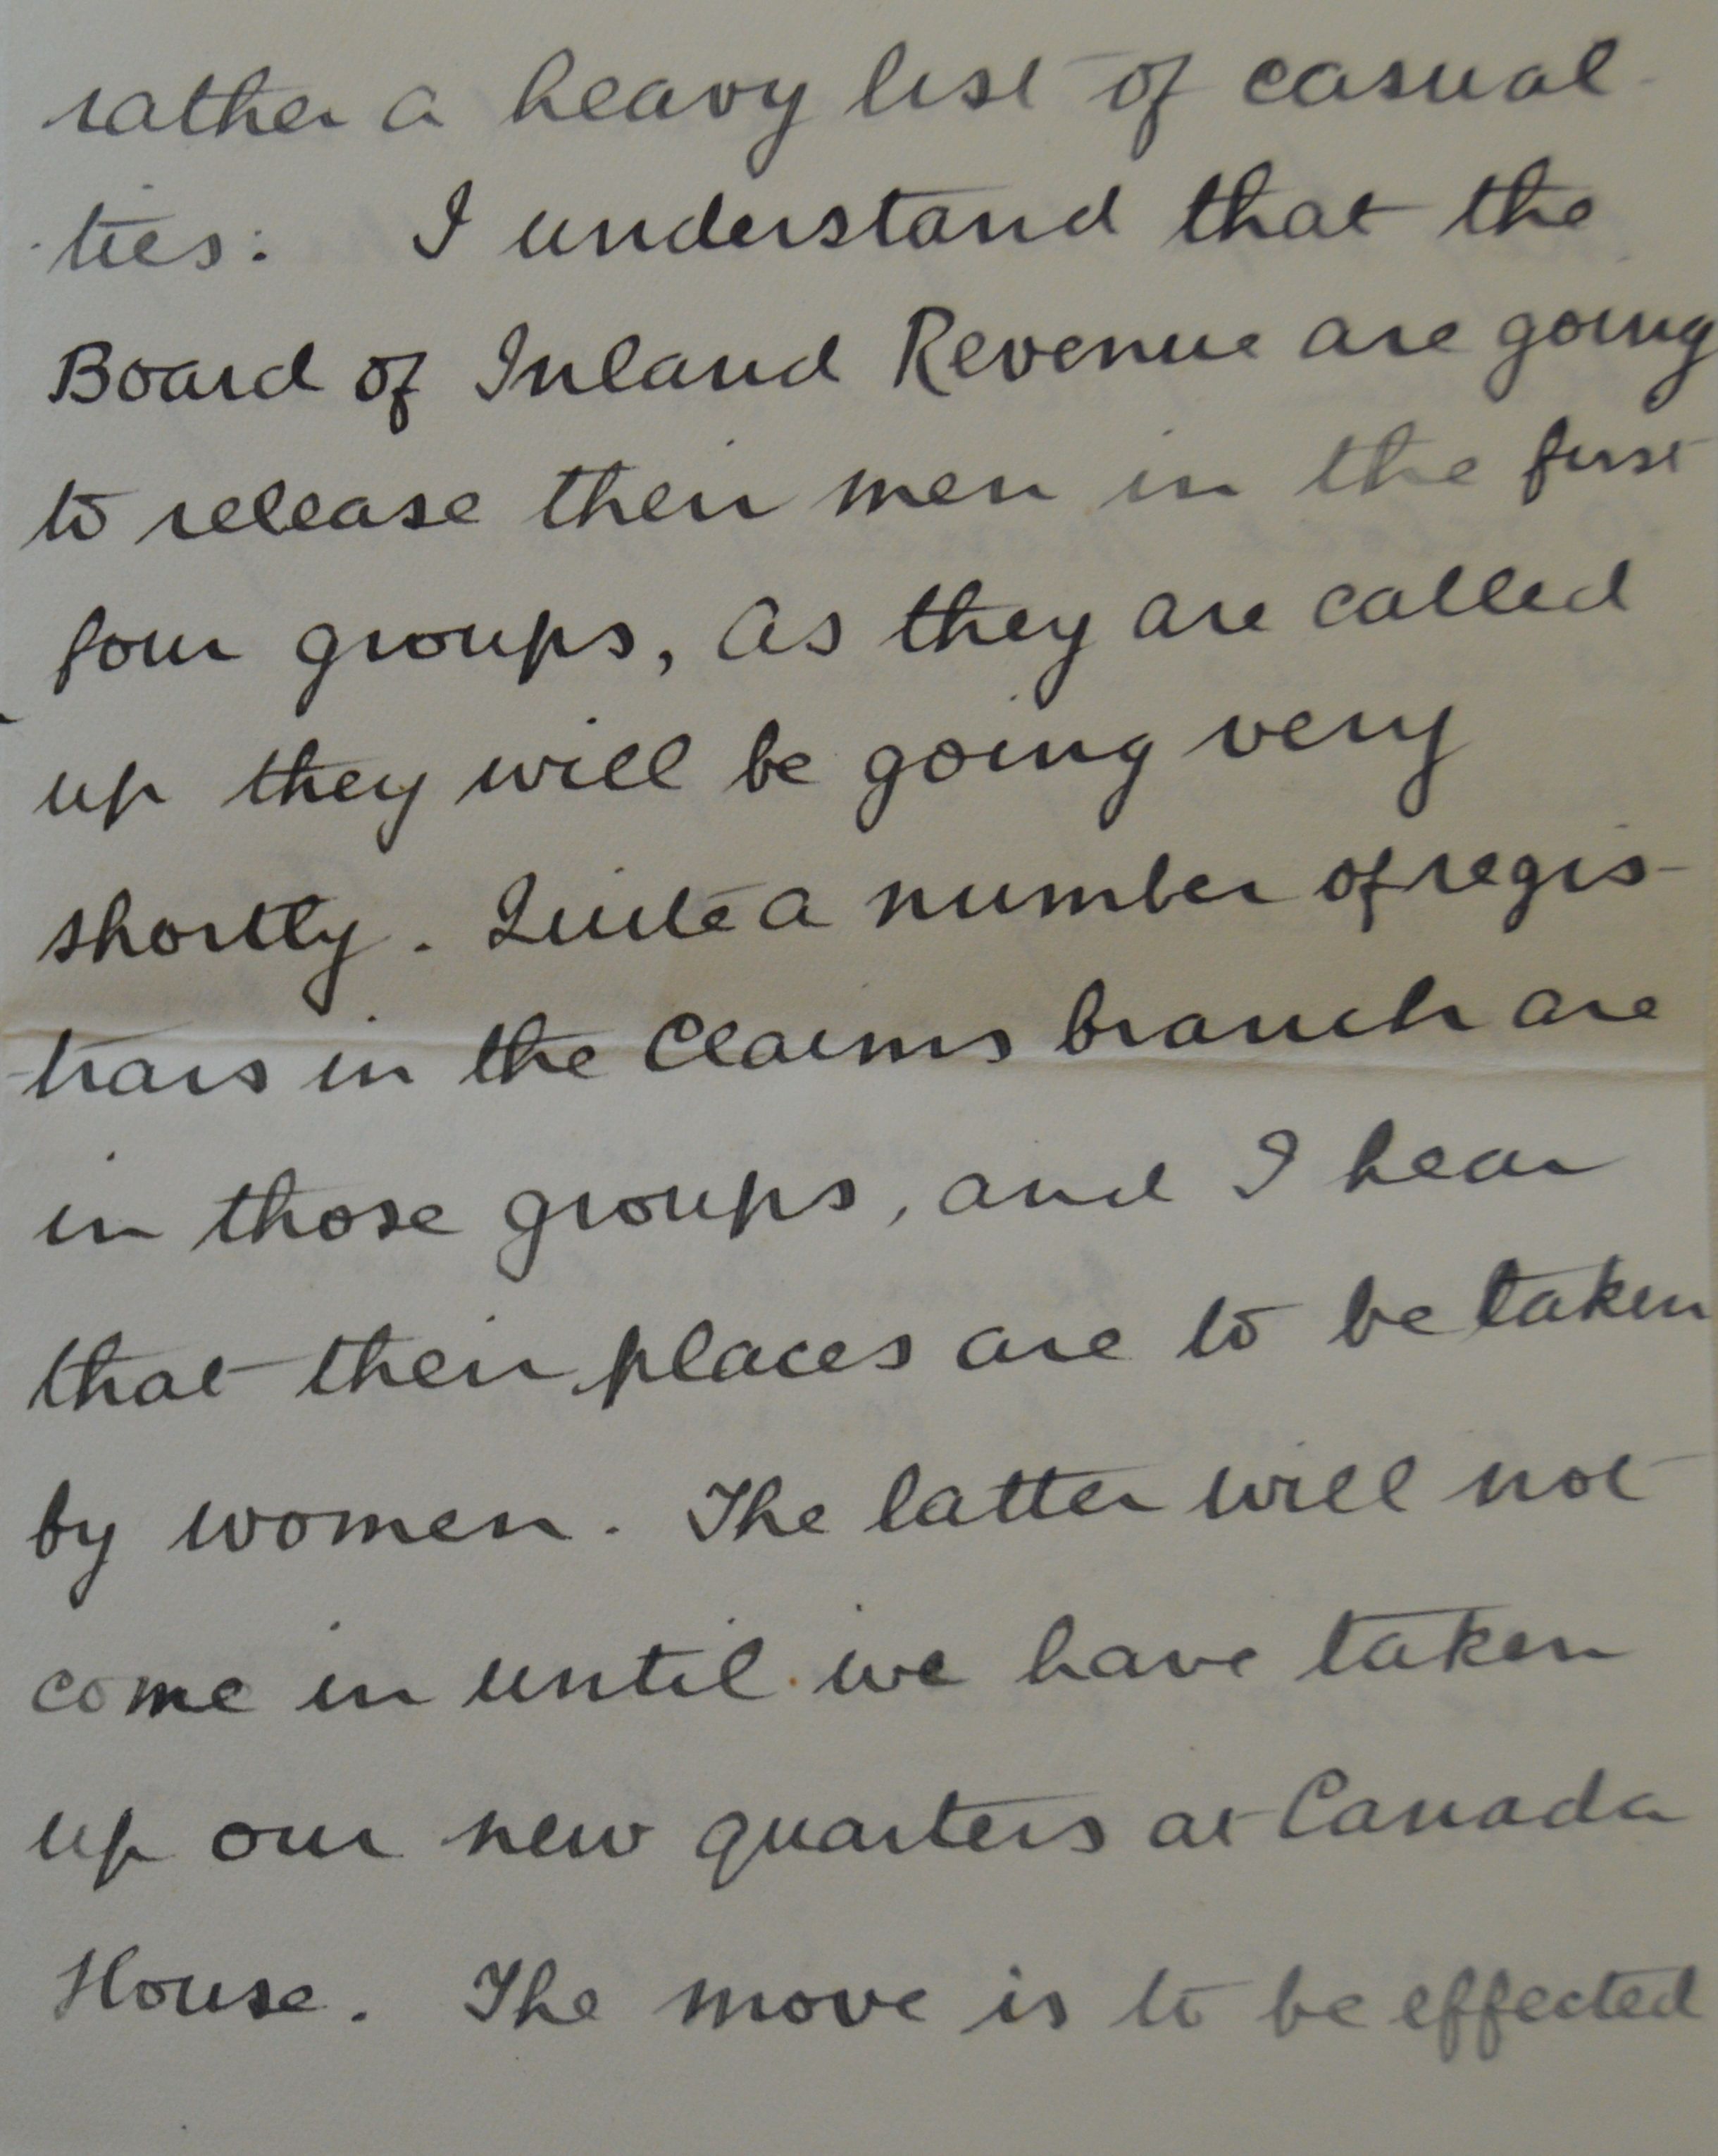 rather a heavy list of casual-
-ties: I understand that the
Board of Inland Revenue are going
to release their men in the first
four groups, as they are called
up they will be going very
shortly. Quite a number of regis-
-trars in the Claims branch are
in those groups, and I hear
that their places are to be taken
by women. The latter will not
come in until we have taken
up our new quarters at Canada
House. The move is to be effected